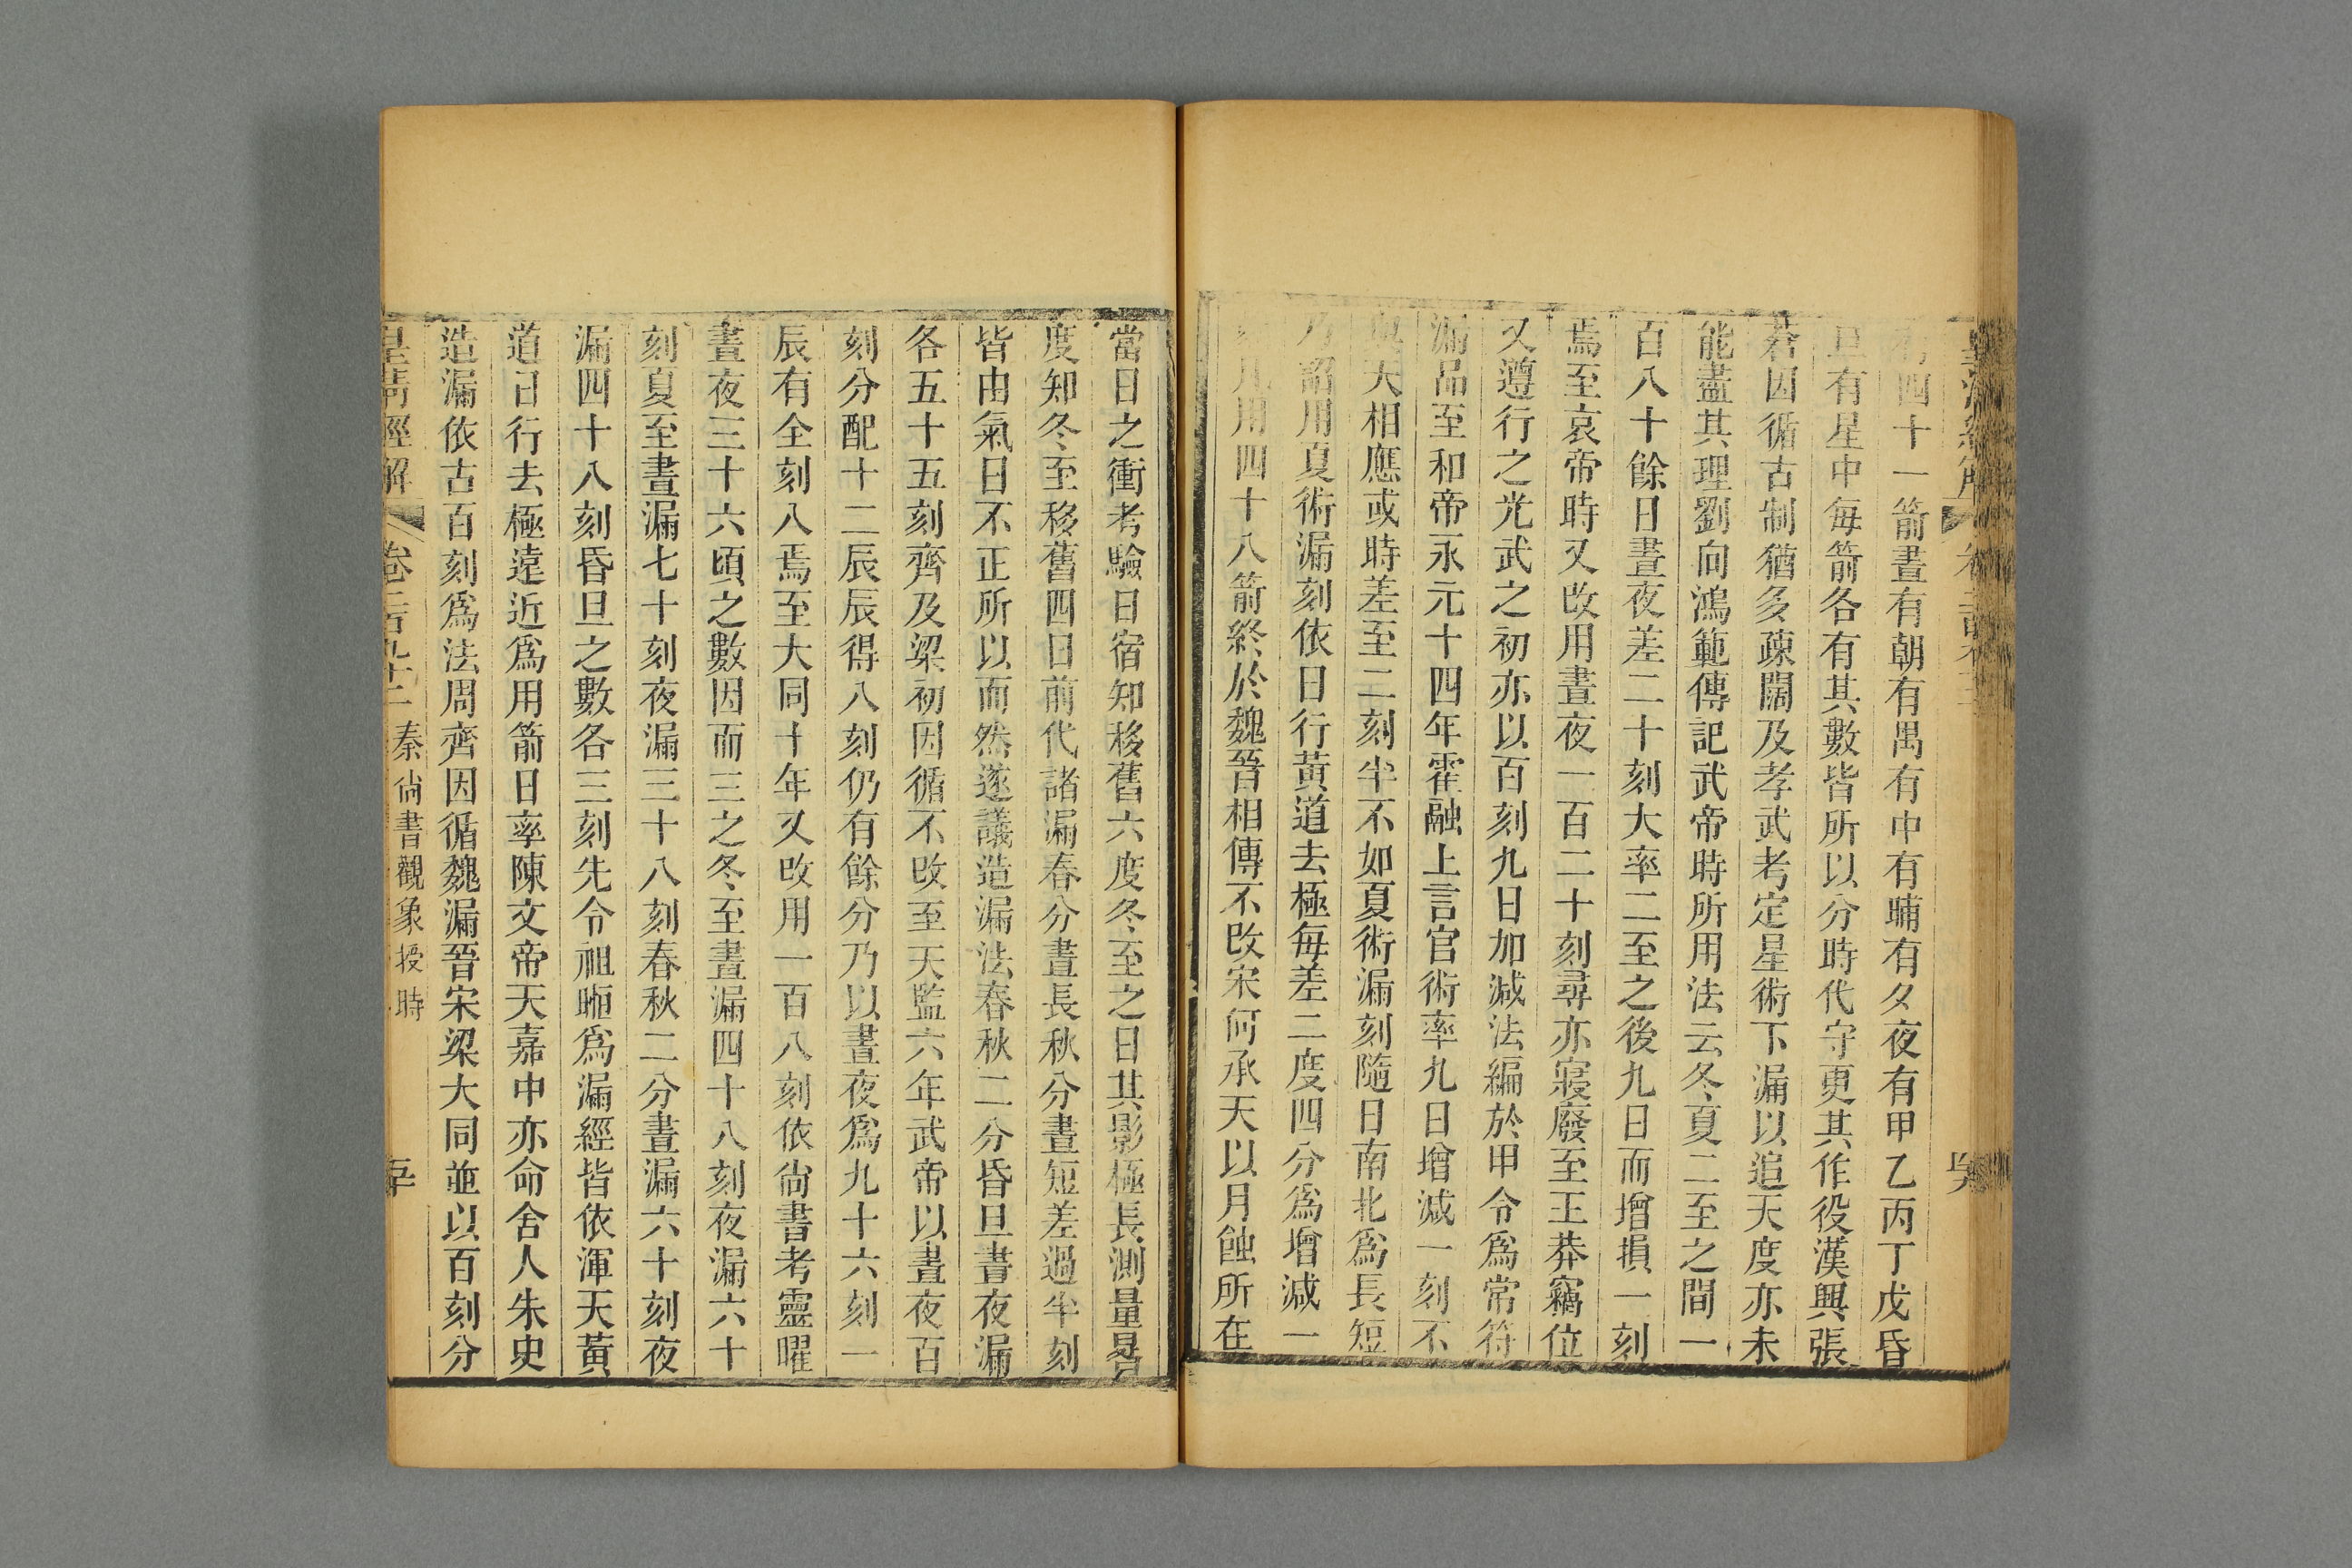 四十一箭晝有朝有禺有中有晡有夕夜有甲乙丙丁戊昏
旦有星中每箭各有其數皆所以分時代守更其作役漢興張
蒼因循古制猶多疎闊及孝武考定星術下漏以追天度亦未
能盡其理劉向鴻範傳記武帝時所用法云冬夏二至之間一
百八十餘日晝夜差二十刻大率二至之後九日而增損一刻
焉至哀帝時又改用晝夜一百二十刻尋亦寢廢至王莽竊位
又遵行之光武之初亦以百刻九日加減法編於甲令爲常符
漏品至和帝永元十四年霍融上言官術率九日增減一刻不
與天相應或時差至二刻半不如夏術漏刻隨日南北爲長短
乃詔用夏術漏刻依日行黃道去極每差二度四分爲增減一
刻凡用四十八箭終於魏晉相傳不改宋何承天以月蝕所在
當日之衝考驗日宿知移舊六度冬至之日其影極長測量晷
度知冬至移舊四日前代諸漏春分晝長秋分晝短差過半刻
皆由氣日不正所以而然遂議造漏法春秋二分昏旦晝夜漏
各五十五刻齊及梁初因循不改至天監六年武帝以晝夜百
刻分配十二辰辰得八刻仍有餘分乃以晝夜爲九十六刻一
辰有全刻八焉至大同十年又改用一百八刻依尙書考靈曜
晝夜三十六頃之數因而三之冬至晝漏四十八刻夜漏六十
刻夏至晝漏七十刻夜漏三十八刻春秋二分晝漏六十刻夜
漏四十八刻昏旦之數各三刻先令祖暅爲漏經皆依渾天黃
道日行去極遠近爲用箭日率陳文帝天嘉中亦命舍人朱史
造漏依古百刻爲法周齊因循魏漏晉宋梁大同並以百刻分
皇淸經解 卷二百九十二 秦尙書觀象授時